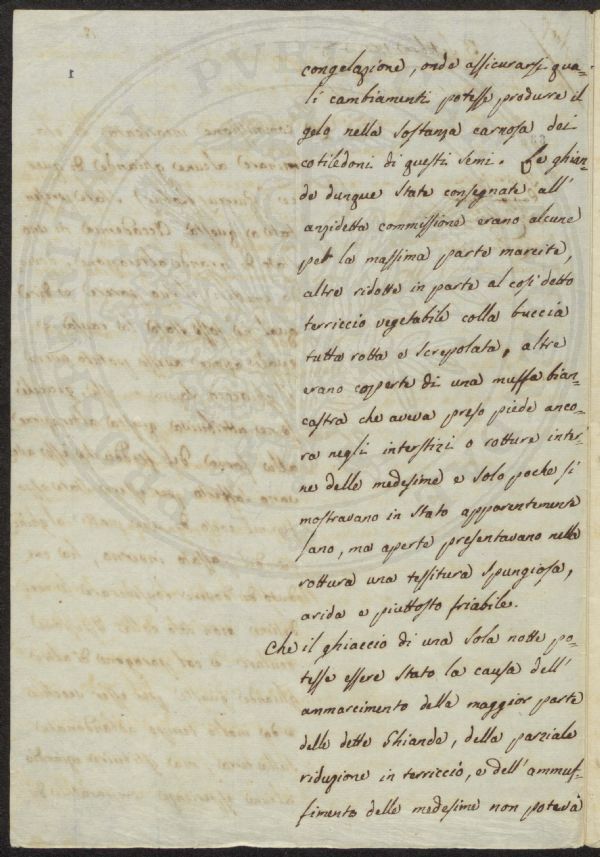 1
congelazione, onde assicurarsi qua-
li cambiamenti potesse produrre il
gelo nella sostanza carnosa dei
cotiledoni di questi semi. Le ghian-
de dunque state consegnate all'
anzidetta commissione erano alcune
per la massima parte marcite,
altre ridotte in parte al così detto
terriccio vegetabile colla buccia
tutta rotta e screpolata, altre
erano coperte di una muffa bian-
castra che aveva preso piede anco-
ra negli interstizi o rotture inter-
ne delle medesime e solo poche si
mostravano in stato apparentemente
sano, ma aperte presentavano nella
rottura una tessitura spungiosa,
arida e piuttosto friabile.
Che il ghiaccio di una sola notte po-
tesse essere stato la causa dell'
ammarcimento della maggior parte
delle dette Ghiande, della parziale
riduzione in terriccio, e dell'ammuf-
fimento delle medesime non poteva